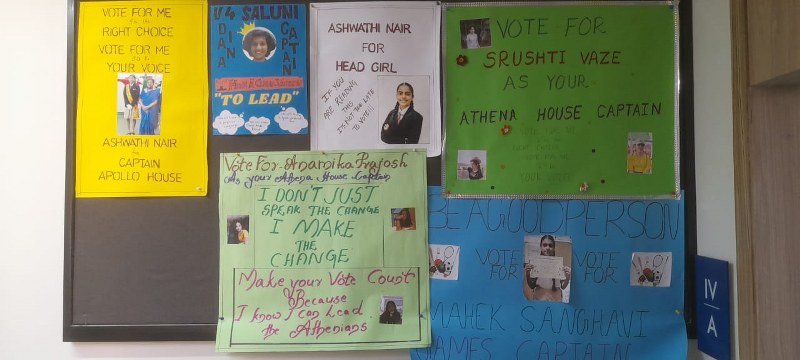 VOTE FOR ME
RIGHT CHOICE
VOTE FOR ME
YOUR VOICE
ASHWATHI NAIR
for
CAPTAIN
APOLLO HOUSE
V4 SALUNI
DIANA
CAPTAIN
"TO LEAD"
ASHWATHI NAIR
FOR
HEAD GIRL
IF YOU
ARE READING
THIS
IT'S NOT TOO LATE
TO VOTE!!
VOTE FOR
SRUSHTI VAZE
AS YOUR
ATHENA HOUSE CAPTAIN
VOTE FOR ME
VOTE FOR ME
YOUR VOICE
Vote For Anamika Prajosh
As your Athena House Captain
I DON'T JUST
SPEAK THE CHANGE
I MAKE
THE
CHANGE
Make your Vote Count
Because
I know I can Lead
the Athenians
BE A GOOD PERSON
VOTE
FOR
VOTE
FOR
MAHEK SANGHAVI
GAMES CAPTAIN
IV/A